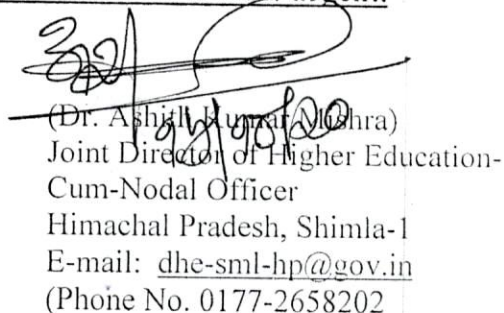 (Dr. Ashith Kumar Mishra)
Joint Director of Higher Education-
Cum-Nodal Officer
Himachal Pradesh, Shimla-1
E-mail: dhe-sml-hp@gov.in
(Phone No. 0177-2658202